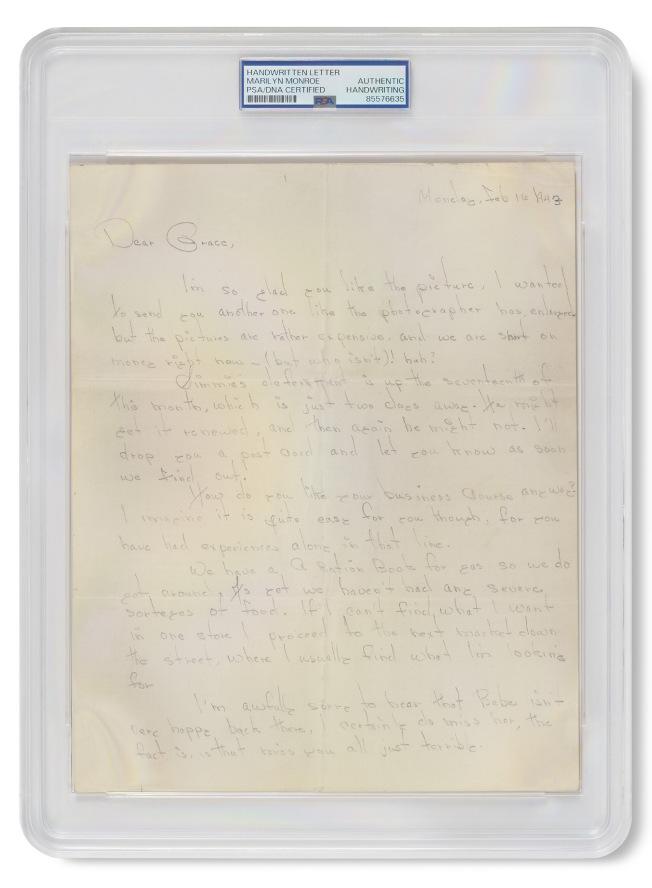 HANDWRITTEN LETTER
MARILYN MONROE
PSA/DNA CERTIFIED
AUTHENTIC
HANDWRITING
PSA
85576635
Monday, Feb 1943
Dear Grace,
I'm so glad you like the picture, I wanted
to send you another one like the photographer has enlarged
but the pictures are rather expensive, and we are short on
money right now – (but who isn't)! huh?
Jimmie's deferment is up the seventeenth of
this month, which is just two days away. He might
get it renewed, and then again he might not. I'll
drop you a post card and let you know as soon
we find out.
How do you like your business course anyway?
I imagine it is quite easy for you though, for you
have had experiences along in that line.
We have a A Ration Book for gas so we do
get around. As yet we haven't had any severe
sorteges of food. If I can't find what I want
in one store I proceed to the next market down
the street, where I usually find what I'm looking
for
I'm awfully sorry to hear that Bebe isn't
very happy back there, I certainly do miss her, the
fact is, is that miss you all just terrible.